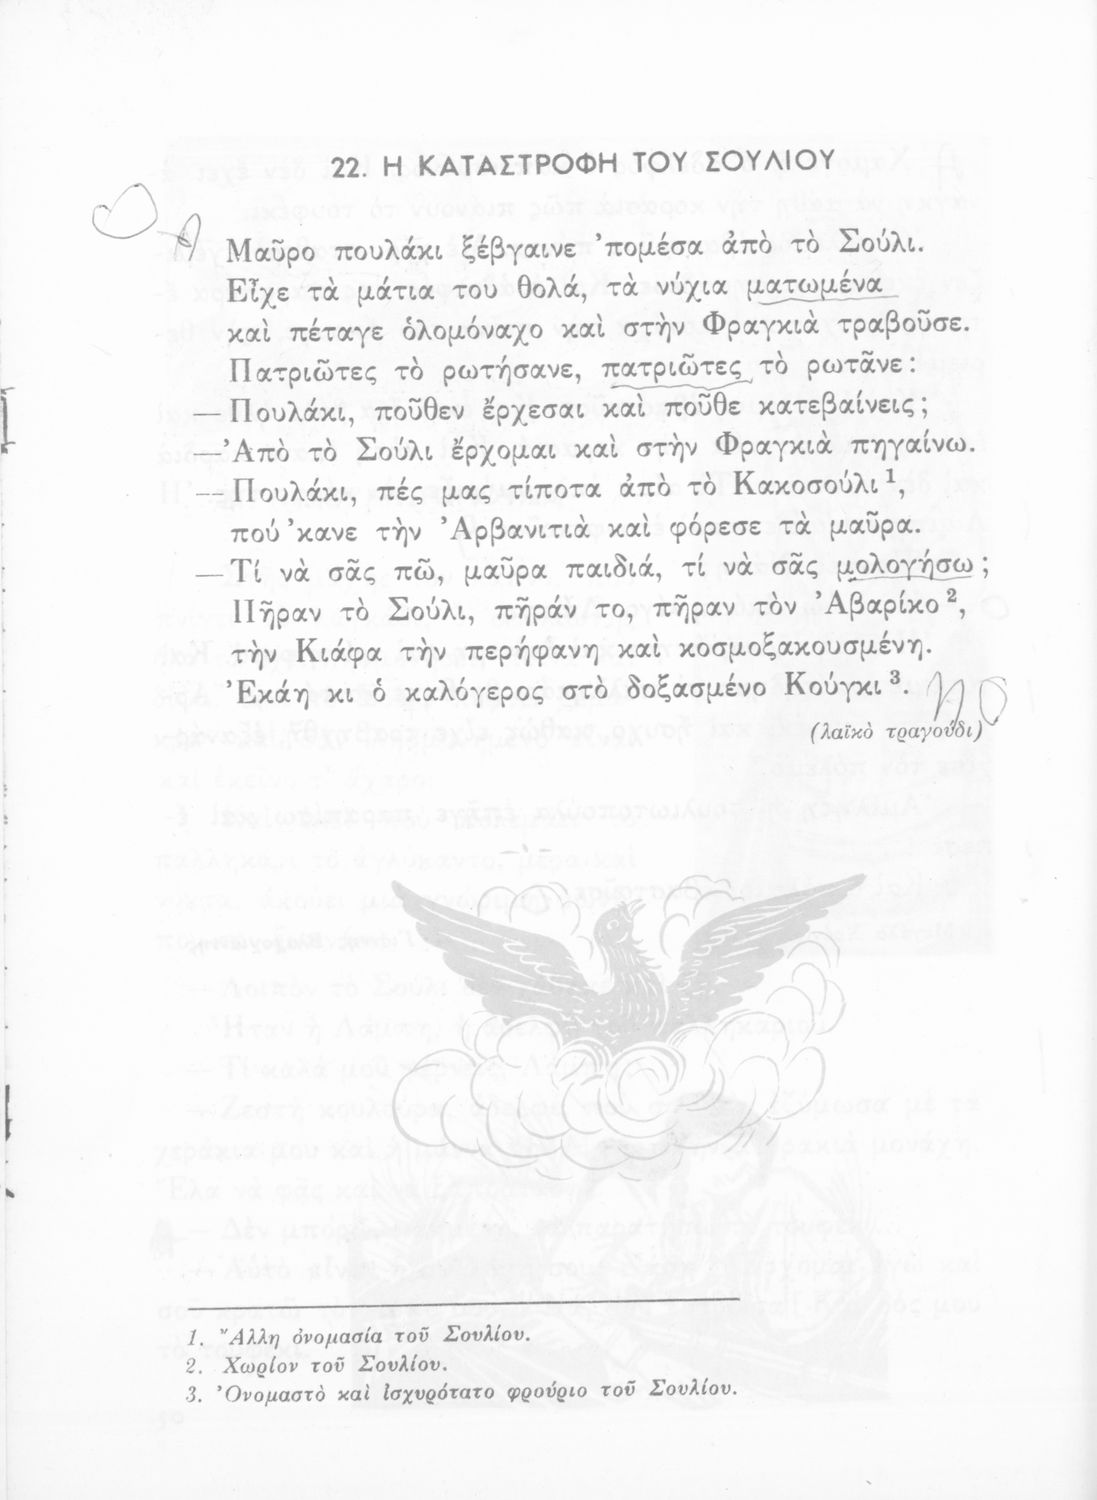 22. Η ΚΑΤΑΣΤΡΟΦΗ ΤΟΥ ΣΟΥΛΙΟΥ
Μαῦρο πουλάκι ξέβγαινε ’πομέσα ἀπὸ τὸ Σούλι.
Εἶχε τὰ μάτια του θολά, τὰ νύχια ματωμένα
καὶ πέταγε ὁλομόναχο καὶ στὴν Φραγκιὰ τραβοῦσε.
Πατριῶτες τὸ ρωτήσανε, πατριῶτες τὸ ρωτᾶνε:
— Πουλάκι, ποῦθεν ἔρχεσαι καὶ ποῦθε κατεβαίνεις;
— ’Απὸ τὸ Σούλι ἔρχομαι καὶ στὴν Φραγκιὰ πηγαίνω.
— Πουλάκι, πές μας τίποτα ἀπὸ τὸ Κακοσούλι¹,
πού ’κανε τὴν ’Αρβανιτιὰ καὶ φόρεσε τὰ μαῦρα.
— Τί νὰ σᾶς πῶ, μαῦρα παιδιά, τί νὰ σᾶς μολογήσω;
Πῆραν τὸ Σούλι, πῆράν το, πῆραν τὸν ’Αβαρίκο²,
τὴν Κιάφα τὴν περήφανη καὶ κοσμοξακουσμένη.
’Εκάη κι ὁ καλόγερος στὸ δοξασμένο Κούγκι³.
(λαϊκὸ τραγούδι)
1. Ἄλλη ὀνομασία τοῦ Σουλίου.
2. Χωρίον τοῦ Σουλίου.
3. ’Ονομαστὸ καὶ ἰσχυρότατο φρούριο τοῦ Σουλίου.